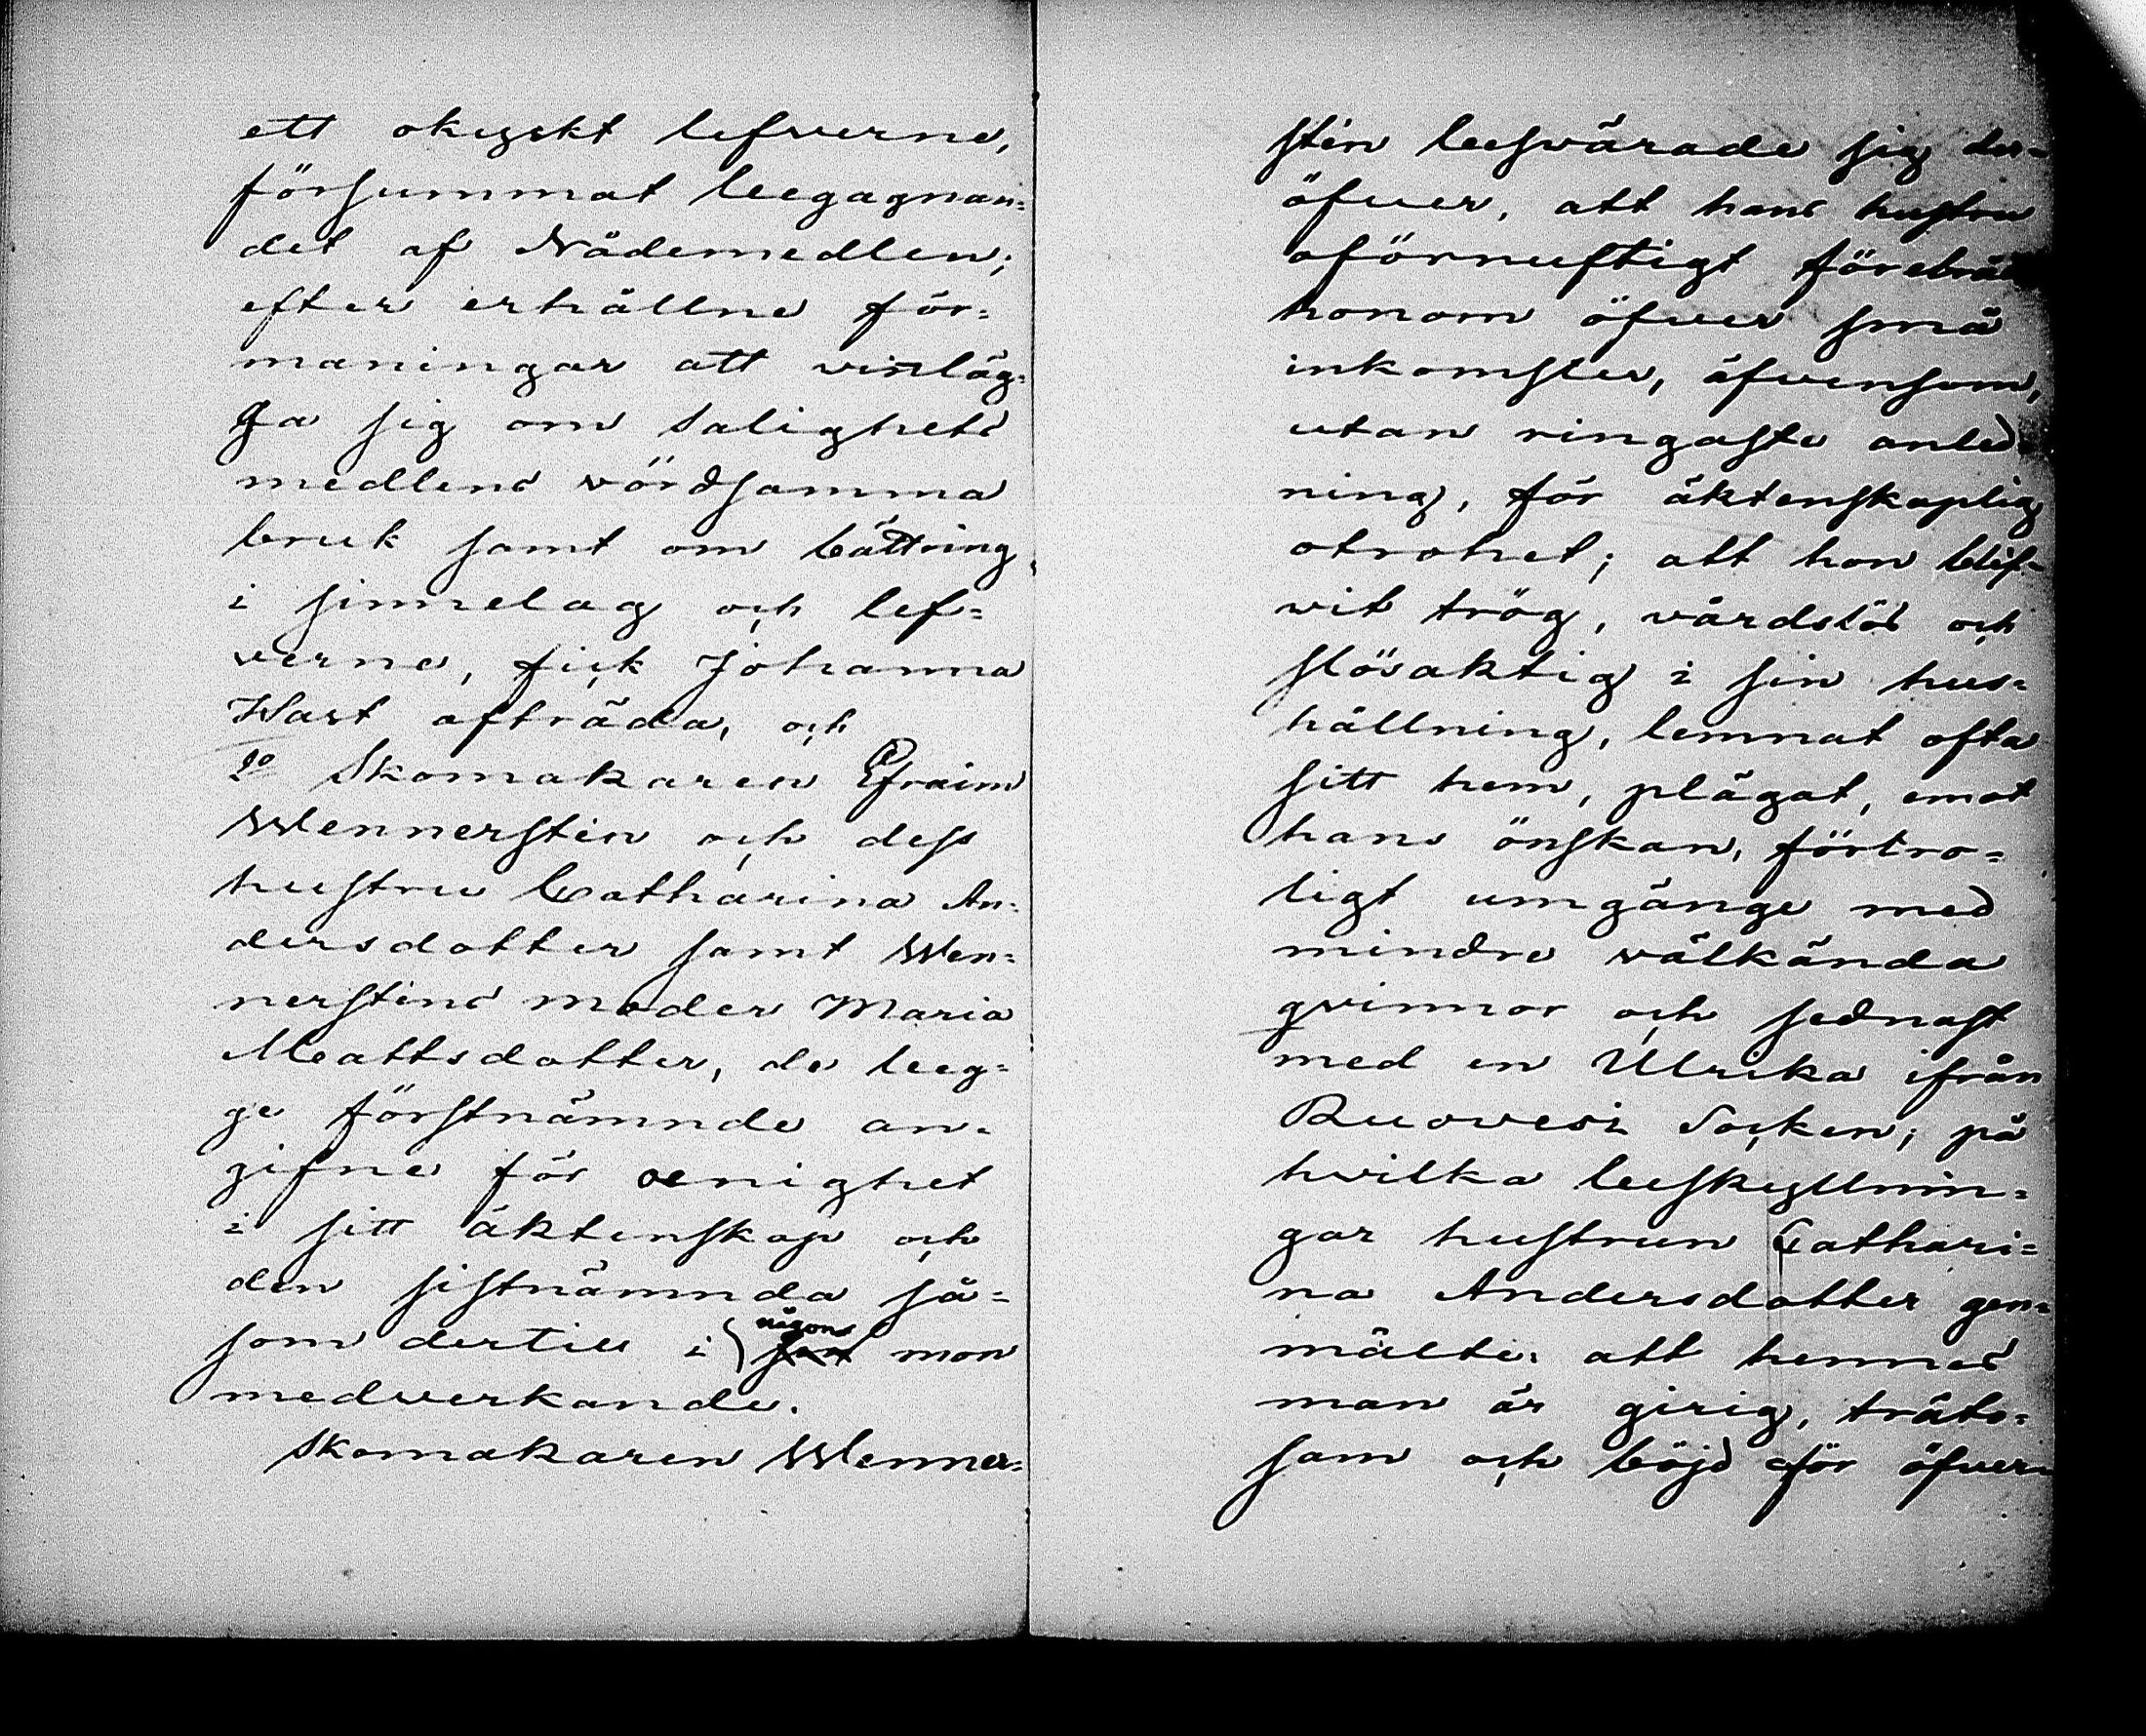 ett okyskt lefverne,
försummat begagnan=
det af Nådemedlen;
efter erhållne för=
maningar att vinläg=
ga sig om salighets
medlens vördsamma
bruk samt om bättring
i sinnelag och lef=
verne, fick Johanna
Wast afträda, och
2o Skomakaren Efraim
Wennerstén och dess
hustru Catharina An=
dersdotter samt Wen=
nersténs moder Maria
Mattsdotter, de beg=
ge förstnämnde an=
gifne för oenighet
i sitt äktenskap och
den sistnämnda så=
som dertill i någon mon
medverkande.
Skomakaren Wenner=
stén besvärade sig der=
öfver, att hans hustru
oförnuftigt
honom öfver små
inkomster, äfvensom,
utan ringaste anled=
ning, för äktenskaplig
otrohet; att hon blif=
vit trög, vårdslös och
slösaktig i sin hus=
hållning, lemnat ofta
sitt hem, plägat, emot
hans önskan, förtro=
ligt umgänge med
mindre välkända
qvinnor och sednast
med en Ulrika ifrån
Ruovesi Socken; på
hvilka beskyllnin=
gar hustrun Cathari=
na Andersdotter gen=
mälte: att hennes
man är girig, träto=
sam och böjd för öfver=